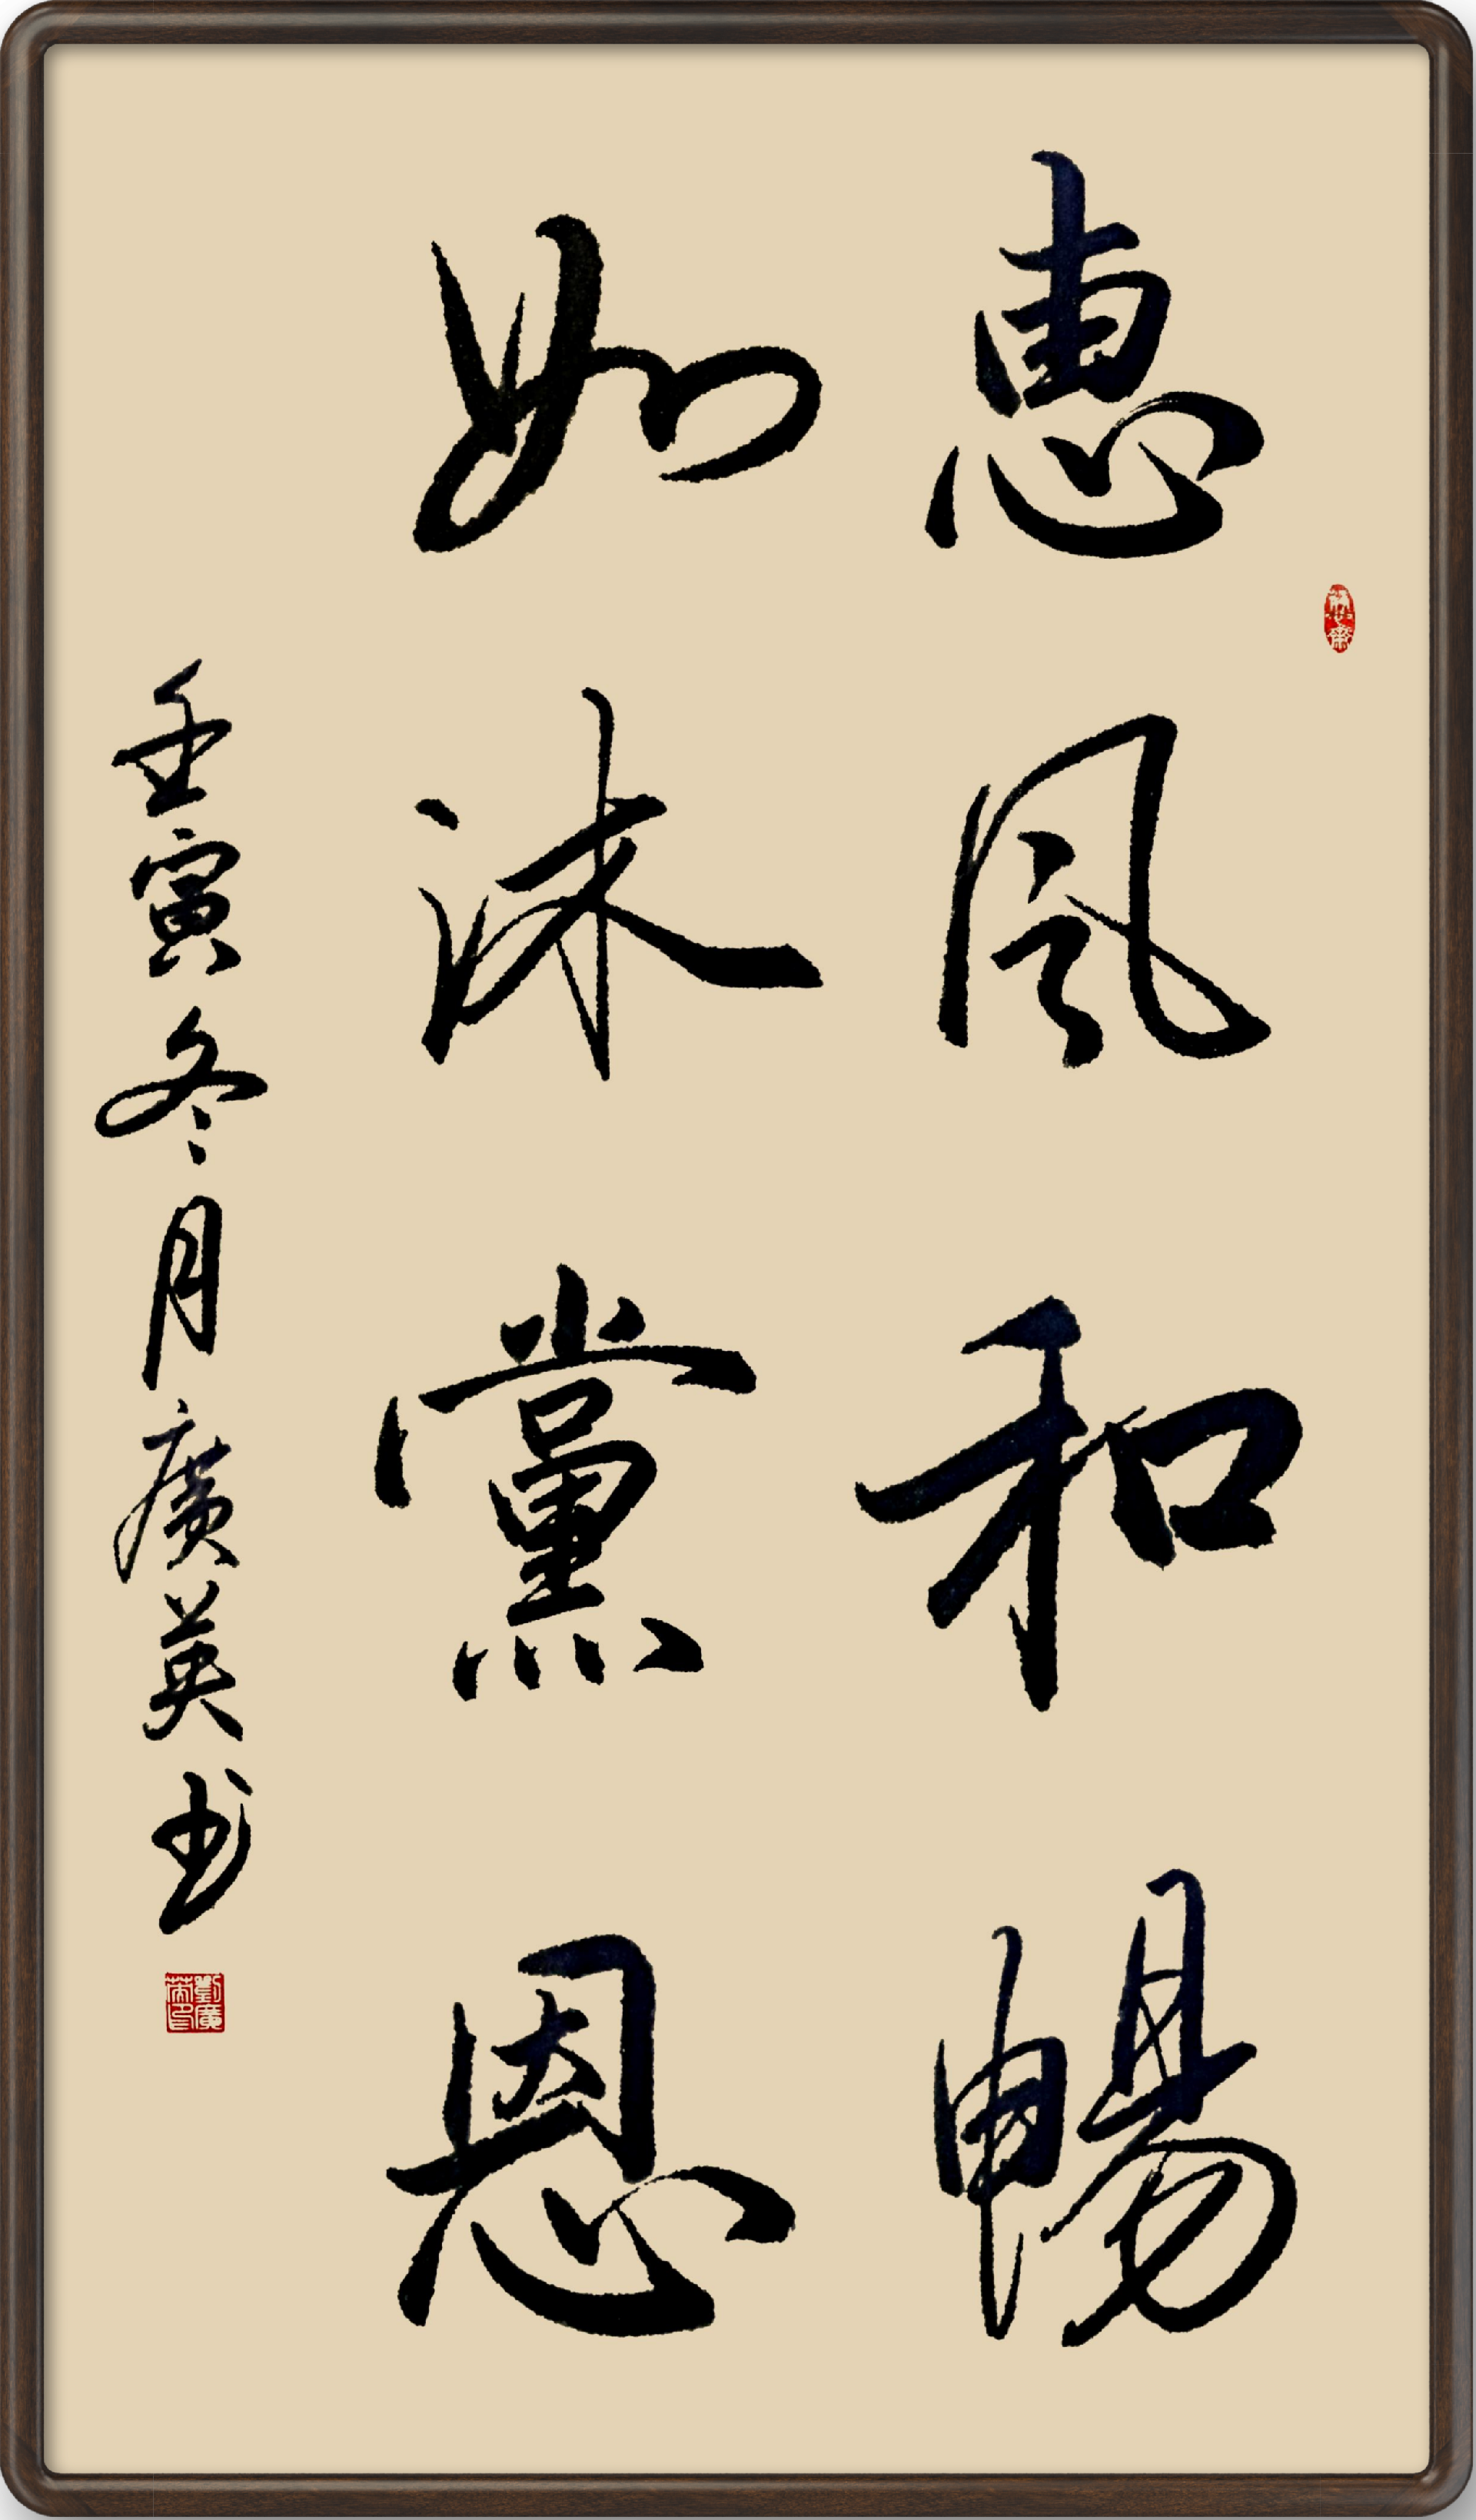 惠風和暢
如沐黨恩
壬寅冬月廣英书
劉廣英印